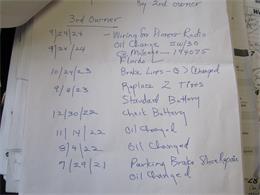 by 2nd owner
3rd Owner
9/24/24 - Wiring for Honor Radio
9/24/24 Oil Change 5W/30
@ Mileage - 194075
Fluids
10/24/23 Brake Lines - Changed
9/6/23 Replace 2 Tires
Standard Battery
12/30/22 Check Battery
11/14/22 Oil Changed
8/4/22 Oil Changed
7/29/21 Parking Brake Shoe
Oil Changed